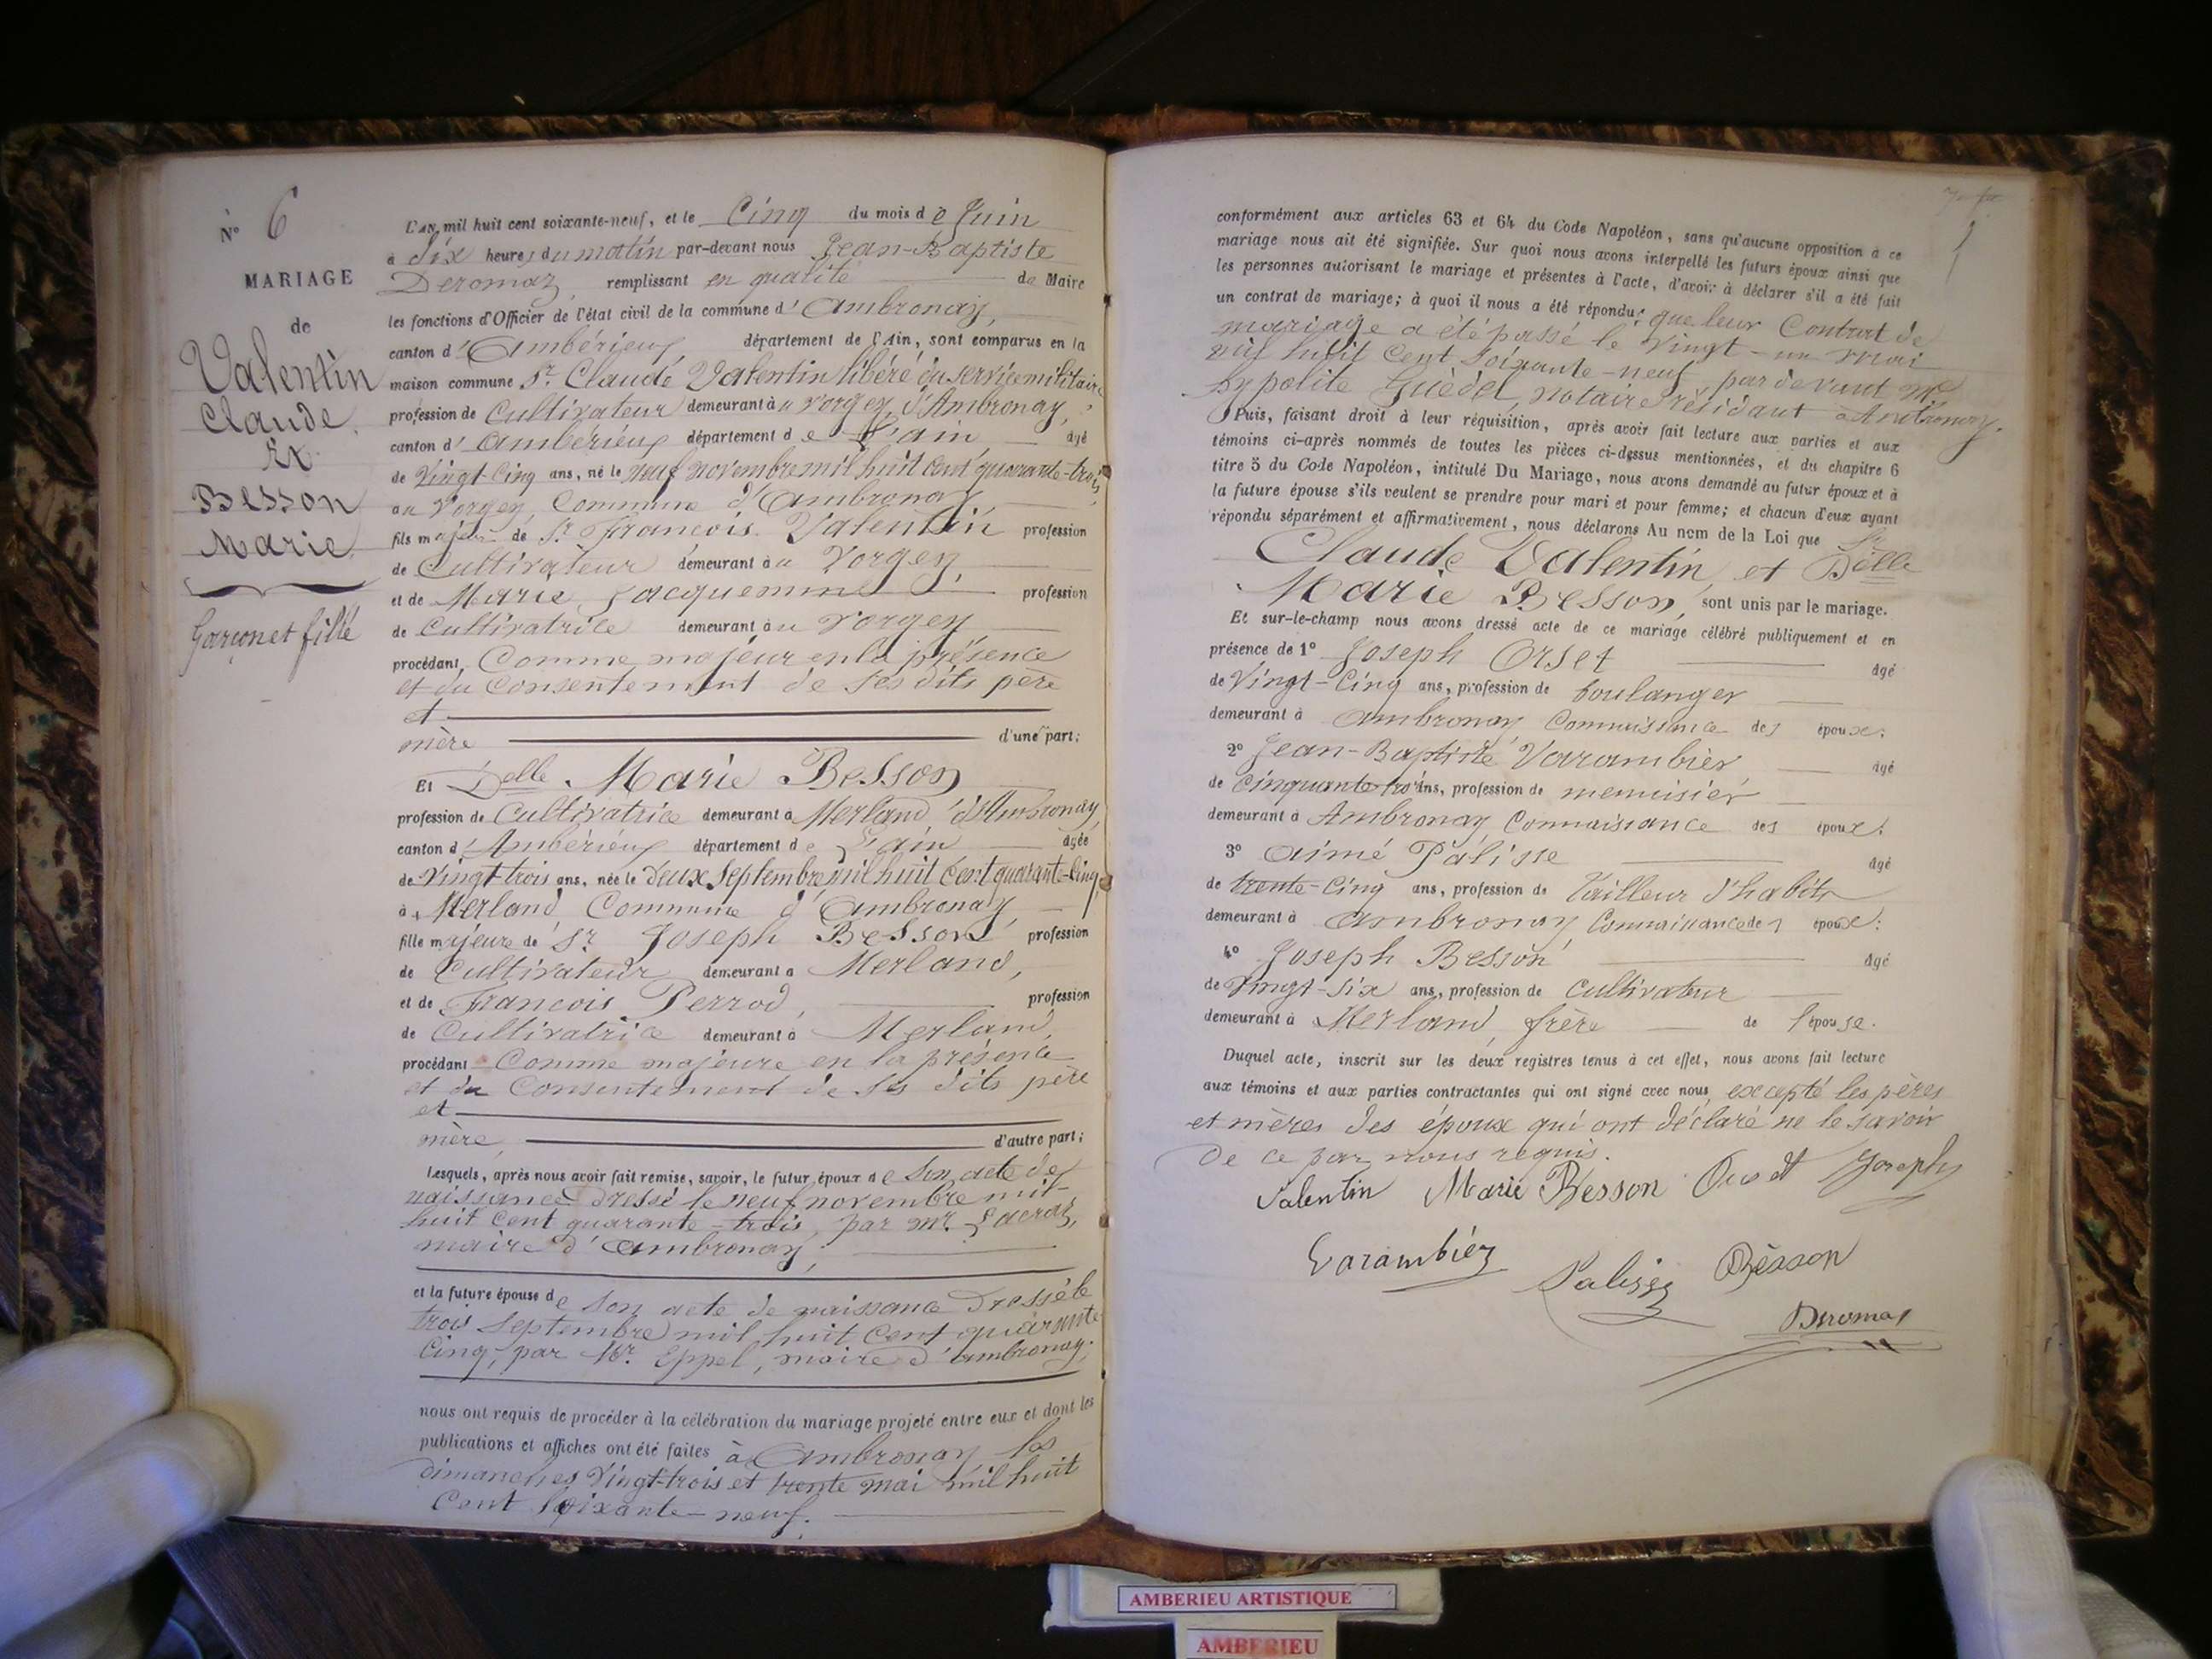 N° 6
MARIAGE
de
Valentin
Claude
Et
Besson
Marie
Garçon et fille
L'an mil huit cent soixante-neuf, et le Cinq du mois de Juin
à Six heures du matin par-devant nous Jean-Baptiste
Deromaz, remplissant en qualité de Maire
les fonctions d'Officier de l'état civil de la commune d'Ambronay,
canton d'Ambérieux département de l'Ain, sont comparus en la
maison commune Sr. Claude Valentin libéré du service militaire
profession de Cultivateur demeurant à u Vorgey, d'Ambronay,
canton d'Ambérieux département de L'ain âgé
de Vingt-Cinq ans, né le neuf novembre mil huit cent quarante-trois,
au Vorgey, Commune d'Ambronay,
fils majeur de Sr. francois Valentin profession
de Cultivateur demeurant à u Vorgey,
et de Marie Jacquemin profession
de Cultivatrice demeurant à u Vorgey
procédant Comme majeur en la présence
et du Consentement de ses dits père
et
mère d'une part;
Et Delle. Marie Besson
profession de Cultivatrice demeurant à Merland d'Ambronay,
canton d'Ambérieux département de L'ain âgée
de Vingt-trois ans, née le Deux Septembre mil huit Cent quarante-Cinq,
à Merland Commune d'Ambronay,
fille majeure de Sr. Joseph Besson profession
de Cultivateur demeurant à Merland,
et de Francois Perrod, profession
de Cultivatrice demeurant à Merland,
procédant Comme majeure en la présence
et du Consentement de ses dits père
et
mère, d'autre part;
Lesquels, après nous avoir fait remise, savoir, le futur époux de Son acte de
naissance Dressé le neuf novembre mil
huit Cent quarante-trois, par mr. Lacraz,
maire d'Ambronay;
et la future épouse de Son acte de naissance Dressé le
trois Septembre mil huit Cent quarante
Cinq, par Mr. Eppel, maire d'ambronay;
nous ont requis de procéder à la célébration du mariage projeté entre eux et dont les
publications et affiches ont été faites à Ambronay, les
dimanches Vingt-trois et trente mai mil huit
Cent Soixante-neuf.
conformément aux articles 63 et 64 du Code Napoléon, sans qu'aucune opposition à ce
mariage nous ait été signifiée. Sur quoi nous avons interpellé les futurs époux ainsi que
les personnes autorisant le mariage et présentes à l'acte, d'avoir à déclarer s'il a été fait
un contrat de mariage; à quoi il nous a été répondu: que leur Contrat de
mariage a été passé le Vingt-un mai
mil huit Cent Soixante-neuf, par devant me
hypolite Guédel, notaire résidant à Ambronay.
Puis, faisant droit à leur réquisition, après avoir fait lecture aux parties et aux
témoins ci-après nommés de toutes les pièces ci-dessus mentionnées, et du chapitre 6
titre 5 du Code Napoléon, intitulé Du Mariage, nous avons demandé au futur époux et à
la future épouse s'ils veulent se prendre pour mari et pour femme; et chacun d'eux ayant
répondu séparément et affirmativement, nous déclarons Au nom de la Loi que Sr.
Claude Valentin, et Delle
Marie Besson, sont unis par le mariage.
Et sur-le-champ nous avons dressé acte de ce mariage célébré publiquement et en
présence de 1° Joseph Orset âgé
de Vingt-Cinq ans, profession de boulanger
demeurant à Ambronay Connaissance des époux;
2° Jean-Baptiste Varambier âgé
de Cinquante-trois ans, profession de menuisier
demeurant à Ambronay, Connaissance des époux;
3° Aimé Palisse âgé
de trente-Cinq ans, profession de Tailleur d'habits
demeurant à Ambronay Connaissance des époux;
4° Joseph Besson âgé
de Vingt-Six ans, profession de Cultivateur
demeurant à Merland, frère de l'épouse.
Duquel acte, inscrit sur les deux registres tenus à cet effet, nous avons fait lecture
aux témoins et aux parties contractantes qui ont signé avec nous, excepté les pères
et mères des époux qui ont déclaré ne le savoir
De ce par nous requis.
Valentin Marie Besson Orset Joseph
Varambiér Palisse Besson
Deromaz
AMBERIEU ARTISTIQUE
AMBERIEU